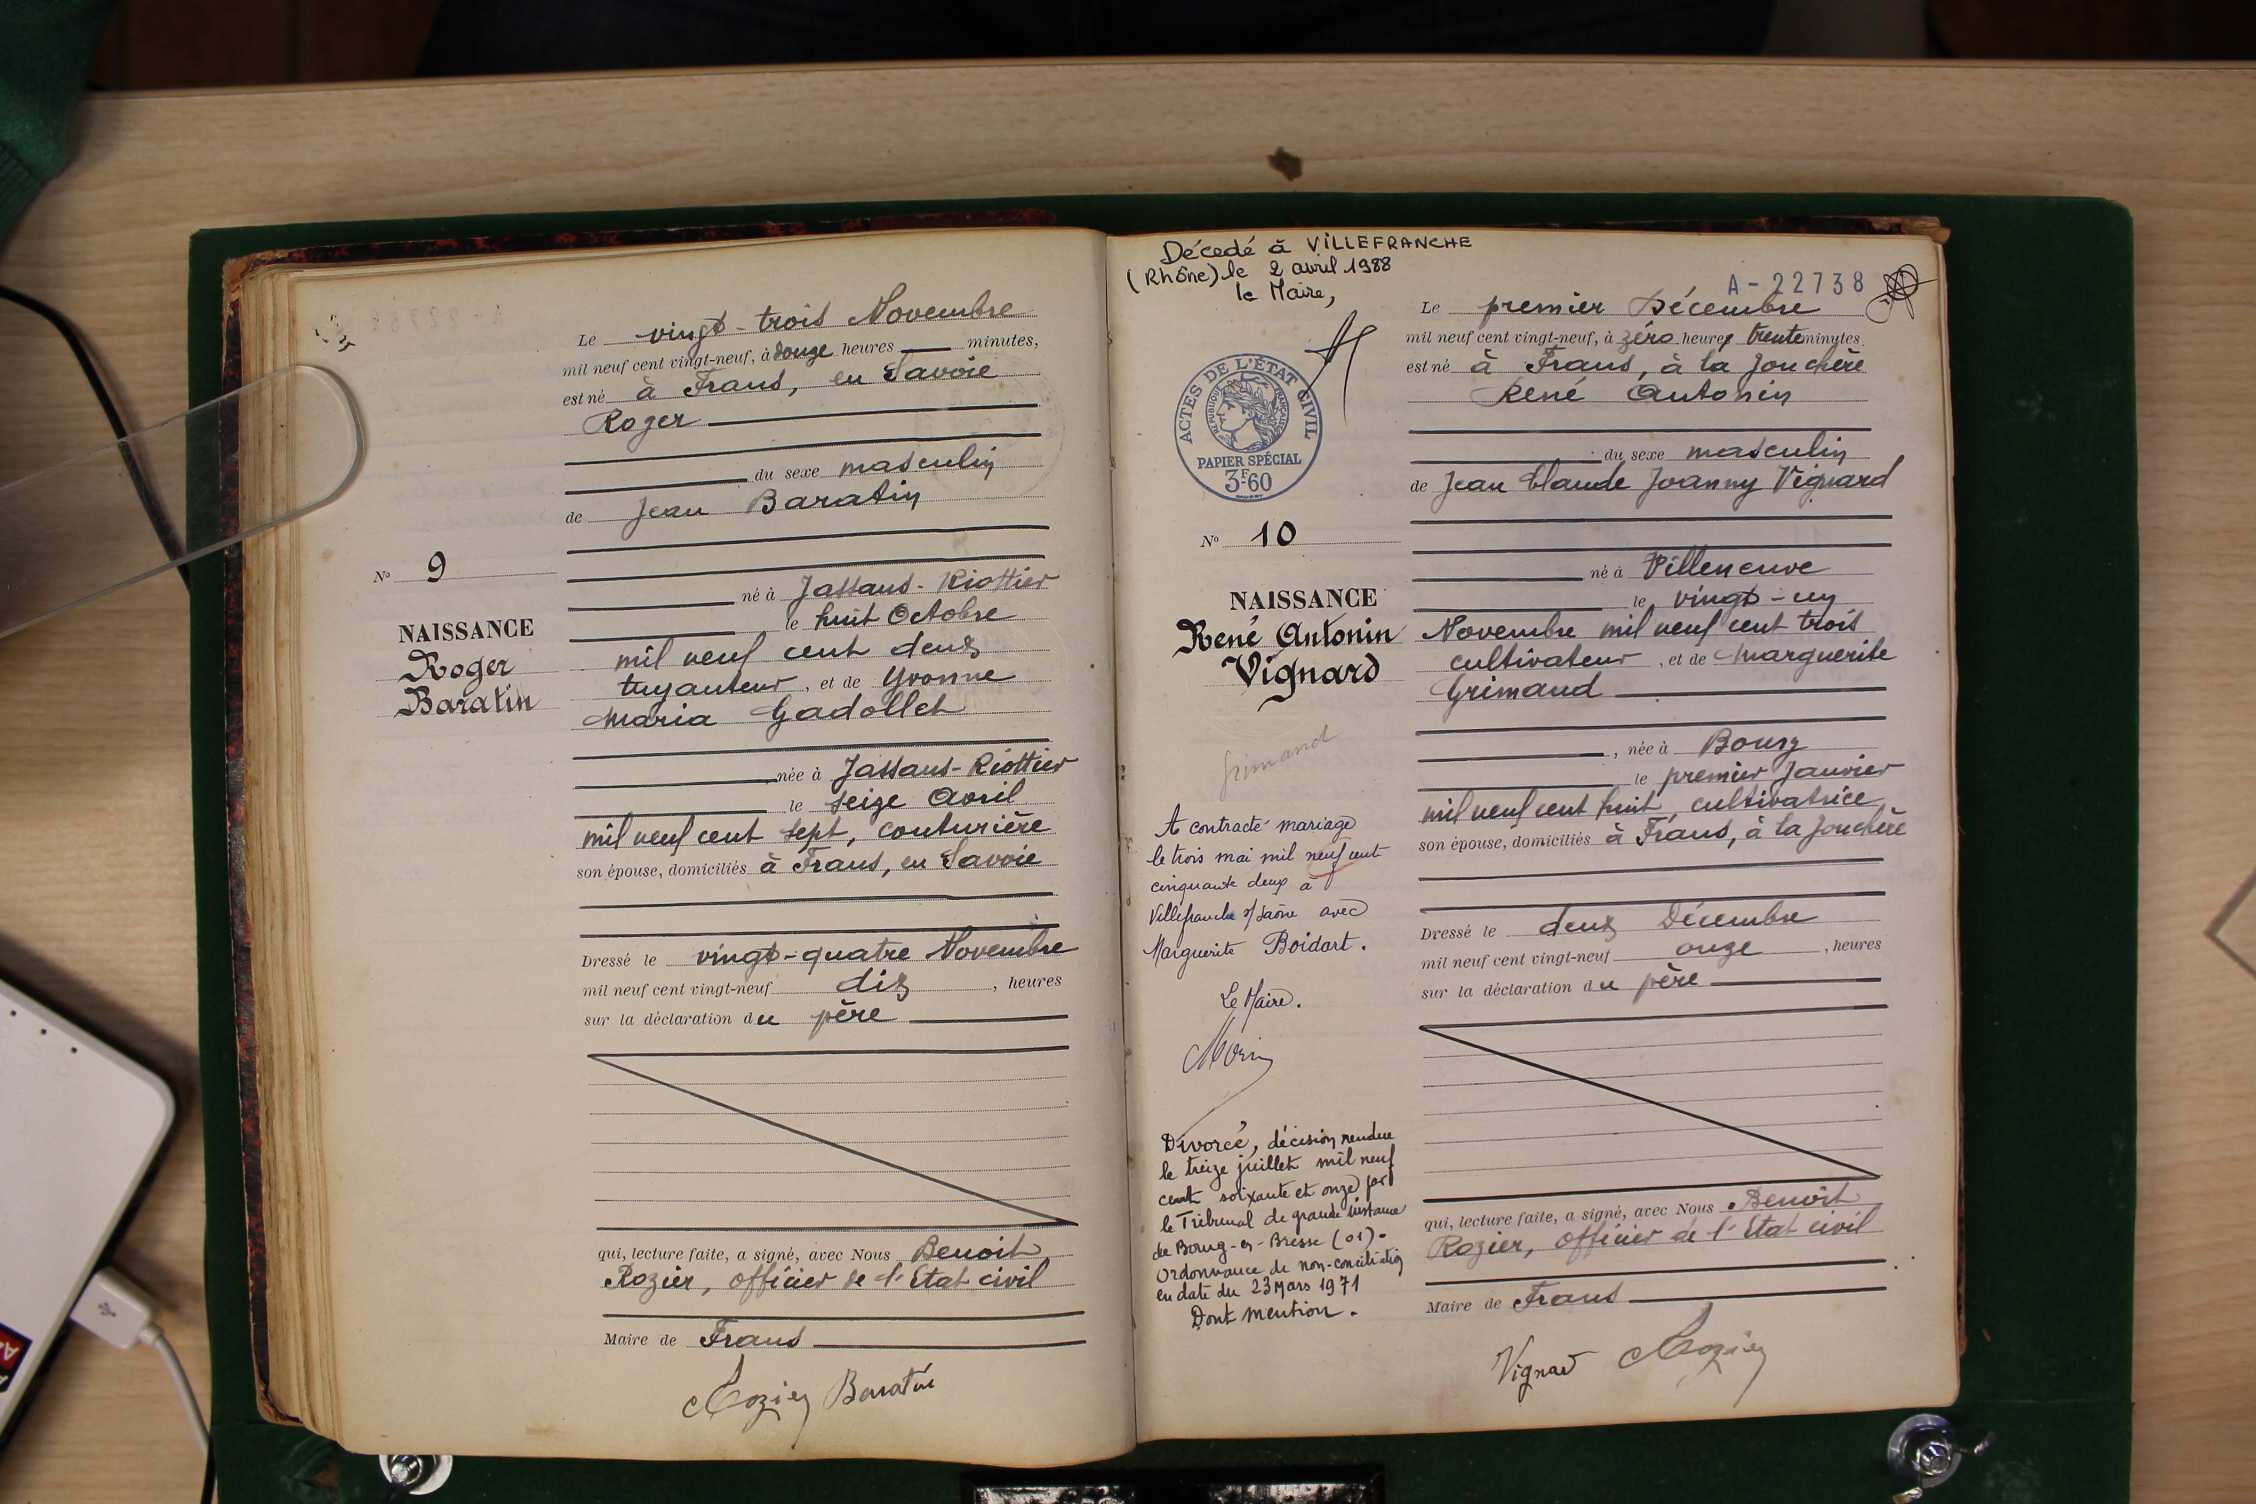 Le vingt-trois Novembre
mil neuf cent vingt-neuf, à douze heures minutes,
est né à Frans, en Savoie
Roger
du sexe masculin
de Jean Baratin
N° 9
NAISSANCE
Roger
Baratin
né à Jassans-Riottier
le huit Octobre
mil neuf cent deux
tuyauteur, et de Yvonne
Maria Gadollet
née à Jassans-Riottier
le seize Avril
mil neuf cent sept, couturière
son épouse, domiciliés à Frans, en Savoie
Dressé le vingt-quatre Novembre
mil neuf cent vingt-neuf dix, heures
sur la déclaration du père
qui, lecture faite, a signé, avec Nous Benoit
Rozier, officier de l'Etat civil
Maire de Frans
Rozier Baratin
Décedé à VILLEFRANCHE
(Rhône) le 2 avril 1988
le Maire,
A-22738
ACTES DE L'ÉTAT CIVIL
RÉPUBLIQUE FRANÇAISE
PAPIER SPÉCIAL
3F60
N° 10
NAISSANCE
René Antonin
Vignard
Grimand
A contracté mariage
le trois mai mil neuf cent
cinquante deux à
Villefranche s/Saône avec
Marguerite Boidart.
Le Maire.
Divorcé, décision rendue
le treize juillet mil neuf
cent soixante et onze par
le Tribunal de grande instance
de Bourg-en-Bresse (01).
Ordonnance de non-conciliation
en date du 23 Mars 1971
Dont mention.
Le premier Décembre
mil neuf cent vingt-neuf, à zéro heures trente minutes
est né à Frans, à la Jonchère
René Antonin
du sexe masculin
de Jean Claude Joanny Vignard
né à Villeneuve
le vingt-un
Novembre mil neuf cent trois
cultivateur, et de Marguerite
Grimand
, née à Bourg
le premier Janvier
mil neuf cent huit, cultivatrice
son épouse, domiciliés à Frans, à la Jonchère
Dressé le deux Décembre
mil neuf cent vingt-neuf onze, heures
sur la déclaration du père
qui, lecture faite, a signé, avec Nous Benoît
Rozier, officier de l'Etat civil
Maire de Frans
Vignard Rozier